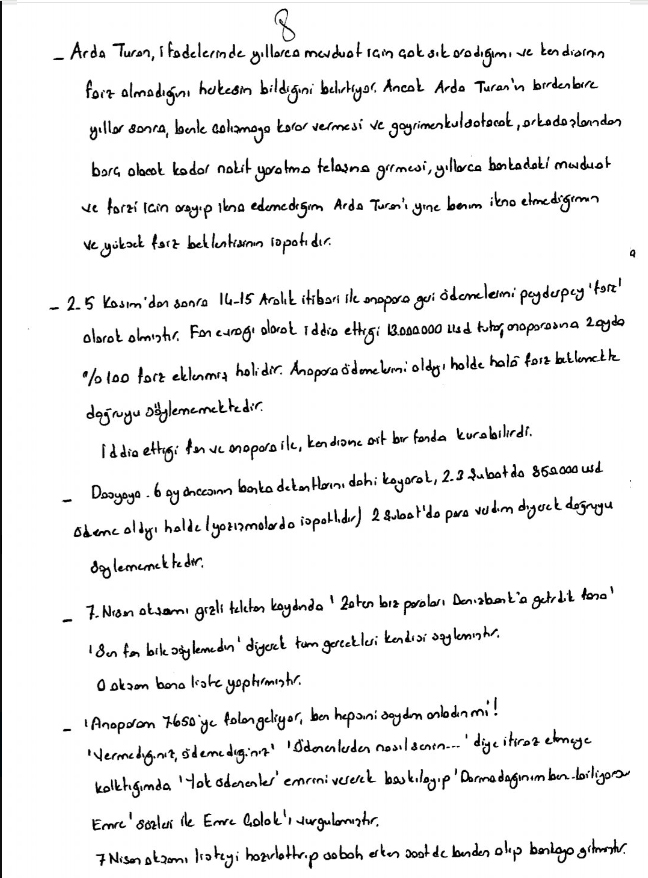 8
- Arda Turan, ifadelerinde yıllarca mevduat için çok sık aradığımı ve kendisinin
faiz almadığını herkesin bildiğini belirtiyor. Ancak Arda Turan'ın birdenbire
yıllar sonra, benle çalışmaya karar vermesi ve gayrimenkul satacak, arkadaşlarından
borç alacak kadar nakit yaratma telaşına girmesi, yıllarca bankadaki mevduat
ve faizi için arayıp ikna edemediğim Arda Turan'ı yine benim ikna etmediğimin
ve yüksek faiz beklentisinin ispatıdır.
- 2.5 Kasım'dan sonra 14-15 Aralık itibari ile anapara geri ödemelerini peyderpey 'faiz'
olarak almıştır. Fon evrağı olarak iddia ettiği 13.000.000 usd tutar, anaparasına 2 ayda
%100 faiz eklenmiş halidir. Anapara ödemelerini aldığı halde hala faiz beklemekte
doğruyu söylememektedir.
İddia ettiği fon ve anapara ile, kendisine ait bir fonda kurabilirdi.
- Dosyaya 6 ay öncesinin banka dekontlarını dahi koyarak, 2-3 Şubat da 850.000 usd
ödeme aldığı halde (yazışmalarda ispatlıdır) 2 Şubat'da para verdim diyerek doğruyu
söylememektedir.
- 7. Nisan akşamı gizli telefon kaydında 'Zaten biz paraları Denizbank'a getirdik sana'
'Sen fon bile söylemedin' diyerek tüm gerçekleri kendisi söylemiştir.
O akşam bana liste yaptırmıştır.
- 'Anaparam 7650'ye falan geliyor, ben hepsini saydım anladın mı'!
'Vermediğiniz, ödemediğiniz' 'Ödenenlerden nasıl senin...' diye itiraz etmeye
kalktığımda 'Yok ödenenler' emrini vererek baskılayıp 'Darmadağınım ben biliyorsun
Emre' sözleri ile Emre Çolak'ı vurgulamıştır.
7 Nisan akşamı listeyi hazırlattırıp sabah erken saatde benden alıp bankaya gitmiştir.